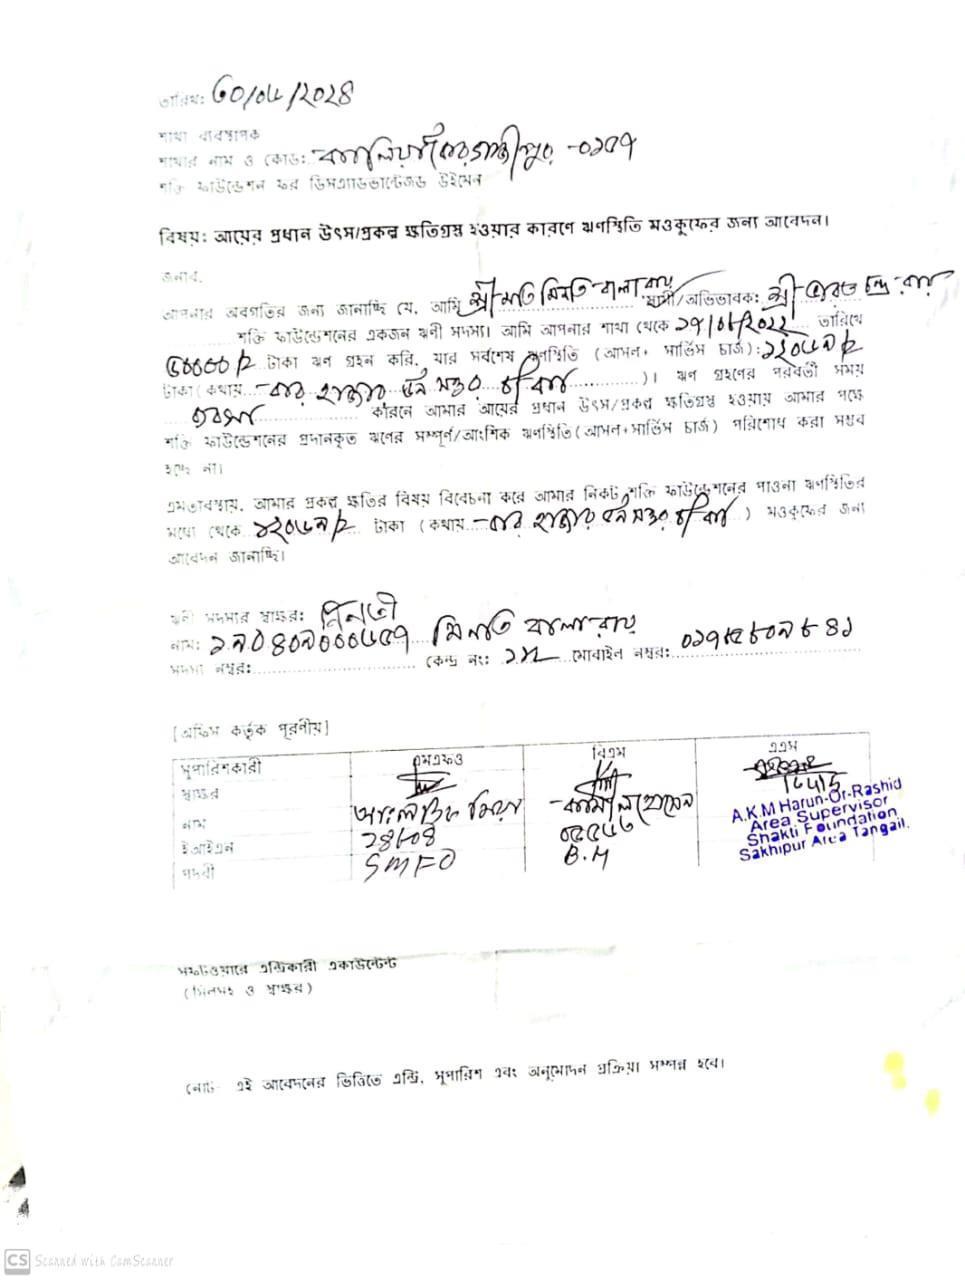 তারিখ: ৩০/০৬/২০২৪
শাখা ব্যবস্থাপক
শাখার নাম ও কোড: কালিয়াকৈর গাজীপুর -০১৫৭
শক্তি ফাউন্ডেশন ফর ডিসএ্যাডভান্টেজড উইমেন
বিষয়: আয়ের প্রধান উৎস/প্রকল্প ক্ষতিগ্রস্ত হওয়ার কারণে ঋণস্থিতি মওকুফের জন্য আবেদন।
জনাব,
আপনার অবগতির জন্য জানাচ্ছি যে, আমি শ্রী মতি মিনতি বালা রায় স্বামী/অভিভাবক: শ্রী ভরত চন্দ্র রায়
শক্তি ফাউন্ডেশনের একজন ঋণী সদস্য। আমি আপনার শাখা থেকে ২৭/০৮/২০২২ তারিখে
টাকা ঋণ গ্রহন করি, যার সর্বশেষ ঋণস্থিতি (আসল+ সার্ভিস চার্জ):
টাকা (কথায় বার হাজার )। ঋণ গ্রহণের পরবর্তী সময়
কারনে আমার আয়ের প্রধান উৎস/প্রকল্প ক্ষতিগ্রস্ত হওয়ায় আমার পক্ষে
শক্তি ফাউন্ডেশনের প্রদানকৃত ঋণের সম্পূর্ণ/আংশিক ঋণস্থিতি(আসল+সার্ভিস চার্জ) পরিশোধ করা সম্ভব
হচ্ছে না।
এমতাবস্থায়, আমার প্রকল্প ক্ষতির বিষয় বিবেচনা করে আমার নিকট শক্তি ফাউন্ডেশনের পাওনা ঋণস্থিতির
মধ্যে থেকে টাকা (কথায় বার হাজার ) মওকুফের জন্য
আবেদন জানাচ্ছি।
ঋণী সদস্যর স্বাক্ষর: মিনতী
নাম: মিনতি বালা রায়
সদস্য নম্বর: কেন্দ্র নং: মোবাইল নম্বর:
[অফিস কর্তৃক পূরণীয়]
সুপারিশকারী এমএফও বিএম এএস
স্বাক্ষর
নাম মিয়া কামাল হোসেন
A.K.M Harun-Or-Rashid
Area Supervisor
Shakti Foundation
Sakhipur Area Tangail.
ইআইএন
পদবী SMFO B.M
সফটওয়্যারে এন্ট্রিকারী একাউন্টেন্ট
(সিলসহ ও স্বাক্ষর)
নোট- এই আবেদনের ভিত্তিতে এন্ট্রি, সুপারিশ এবং অনুমোদন প্রক্রিয়া সম্পন্ন হবে।
CS Scanned with CamScanner